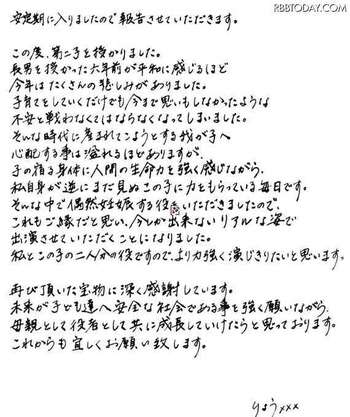 (C) RBBTODAY.COM
安定期に入りましたので報告させていただきます。
この度、第二子を授かりました。
長男を授かった六年前が平和に感じるほど
今年はたくさんの悲しみがありました。
子育てをしていくだけでも今まで思いもしなかったような
不安と戦わなくてはならなくなってしまいました。
そんな時代に産まれてこようとする我が子へ
心配する事は溢れるほどありますが、
子の宿る身体に人間の生命力を強く感じながら、
私自身が逆にまだ見ぬこの子に力をもらっている毎日です。
そんな中で偶然妊娠する役をいただきましたので、
これもご縁だと思い、今しか出来ないリアルな姿で
出演させていただくことになりました。
私とこの子の二人分の役ですので、より力強く演じきりたいと思います。
再び頂いた宝物に深く感謝しています。
未来が子ども達へ安全な社会である事を強く願いながら、
母親として役者として共に成長していけたらと思っております。
これからも宜しくお願い致します。
りょう xxx